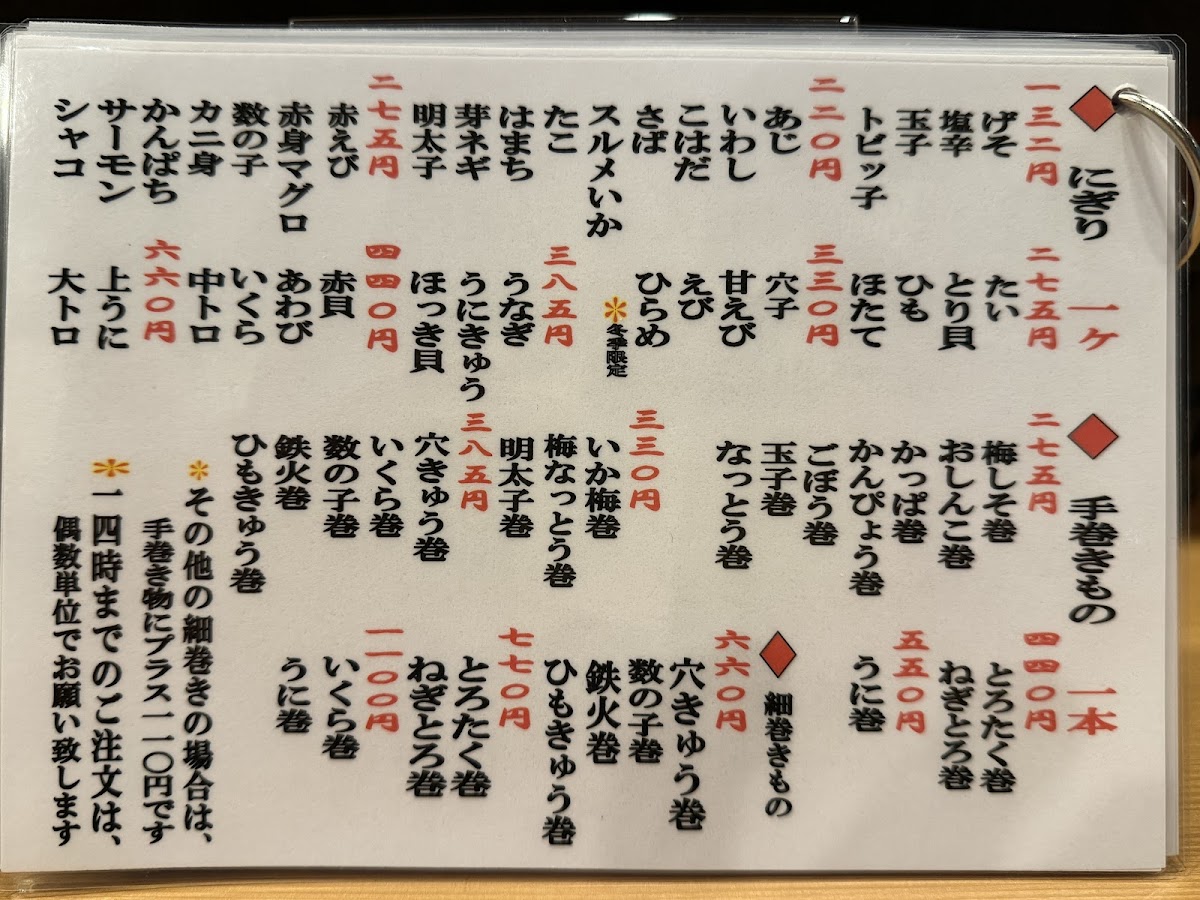 ◆にぎり 一ケ
一三二円
げそ
塩辛
玉子
トビッ子
二二〇円
あじ
いわし
こはだ
さば
スルメいか
たこ
はまち
芽ネギ
明太子
二七五円
赤えび
赤身マグロ
数の子
カニ身
かんぱち
サーモン
シャコ
二七五円
たい
とり貝
ひも
ほたて
三三〇円
穴子
甘えび
えび
ひらめ
✽冬季限定
三八五円
うなぎ
うにきゅう
ほっき貝
四四〇円
赤貝
あわび
いくら
中トロ
六六〇円
上うに
大トロ
◆手巻きもの 一本
二七五円
梅しそ巻
おしんこ巻
かっぱ巻
かんぴょう巻
ごぼう巻
玉子巻
なっとう巻
三三〇円
いか梅巻
梅なっとう巻
明太子巻
三八五円
穴きゅう巻
いくら巻
数の子巻
鉄火巻
ひもきゅう巻
四四〇円
とろたく巻
ねぎとろ巻
五五〇円
うに巻
◆細巻きもの
六六〇円
穴きゅう巻
数の子巻
鉄火巻
ひもきゅう巻
七七〇円
とろたく巻
ねぎとろ巻
一一〇〇円
いくら巻
うに巻
✽その他の細巻きの場合は、
手巻き物にプラス一一〇円です
✽一四時までのご注文は、
偶数単位でお願い致します